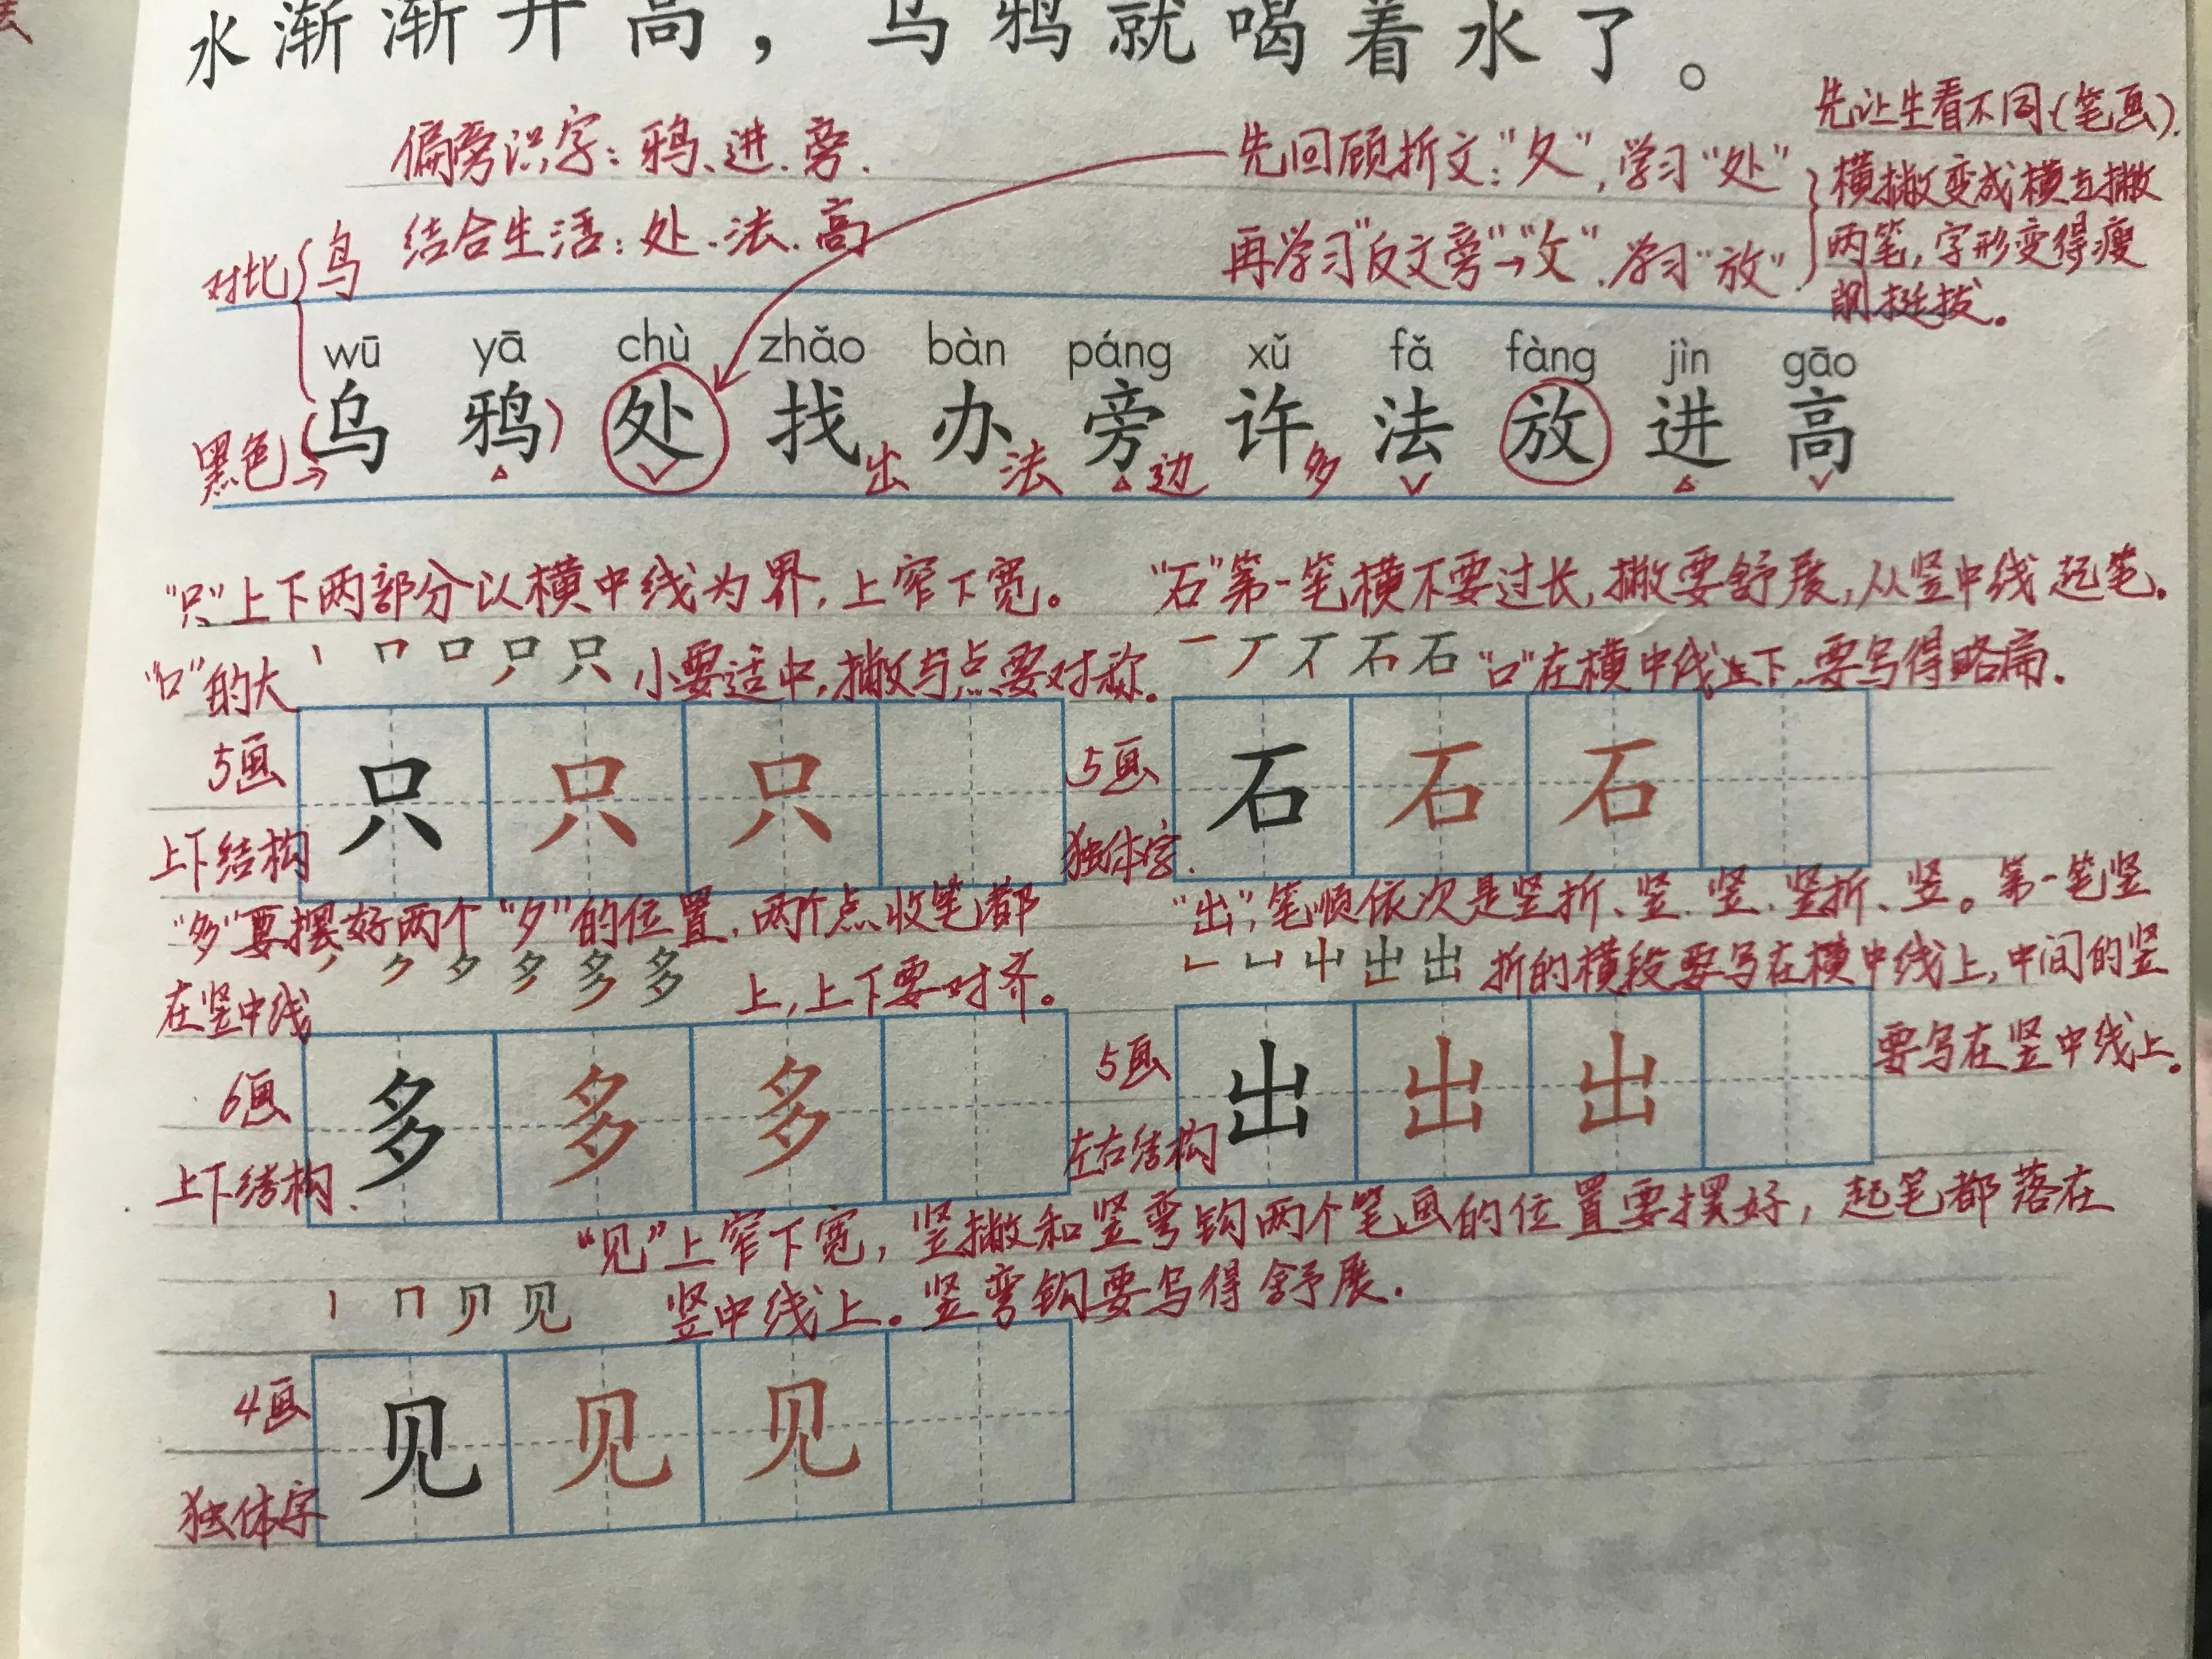 水渐渐升高，乌鸦就喝着水了。
偏旁识字：鸦、进、旁.
结合生活：处、法、高
对比{鸟
先回顾折文:"夂"，学习"处"
再学习"反文旁"→"攵".学习"放"
先让生看不同(笔画).
横撇变成横与撇
两笔，字形变得瘦
削挺拔。
wū yā chù zhǎo bàn páng xǔ fǎ fàng jìn gāo
黑色→(乌鸦) 处 找出 办法 旁边 许多 法 放 进 高
"只"上下两部分以横中线为界，上窄下宽。
"口"的大小要适中，撇与点要对称。
丨 口 只 只
5画
上下结构
只 只 只
"石"第一笔横不要过长，撇要舒展，从竖中线起笔。
一 丆 石 石
"口"在横中线上下，要写得略扁。
5画
独体字.
石 石 石
"多"要摆好两个"夕"的位置，两个点收笔都
在竖中线上，上下要对齐。
丿 ク 夕 多
6画
上下结构.
多 多 多
"出"，笔顺依次是竖折、竖、竖、竖折、竖。第一笔竖
折的横段要写在横中线上，中间的竖
要写在竖中线上。
𠃊 凵 屮 出 出
5画
左右结构
出 出 出
"见"上窄下宽，竖撇和竖弯钩两个笔画的位置要摆好，起笔都落在
竖中线上。竖弯钩要写得舒展.
丨 冂 见
4画
独体字
见 见 见